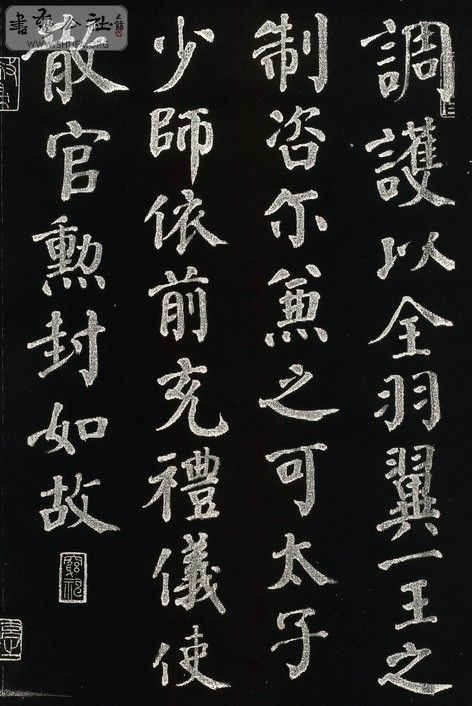 調護以全羽翼一王之
制咨尓兼之可太子
少師依前充禮儀使
散官勲封如故
書法公社